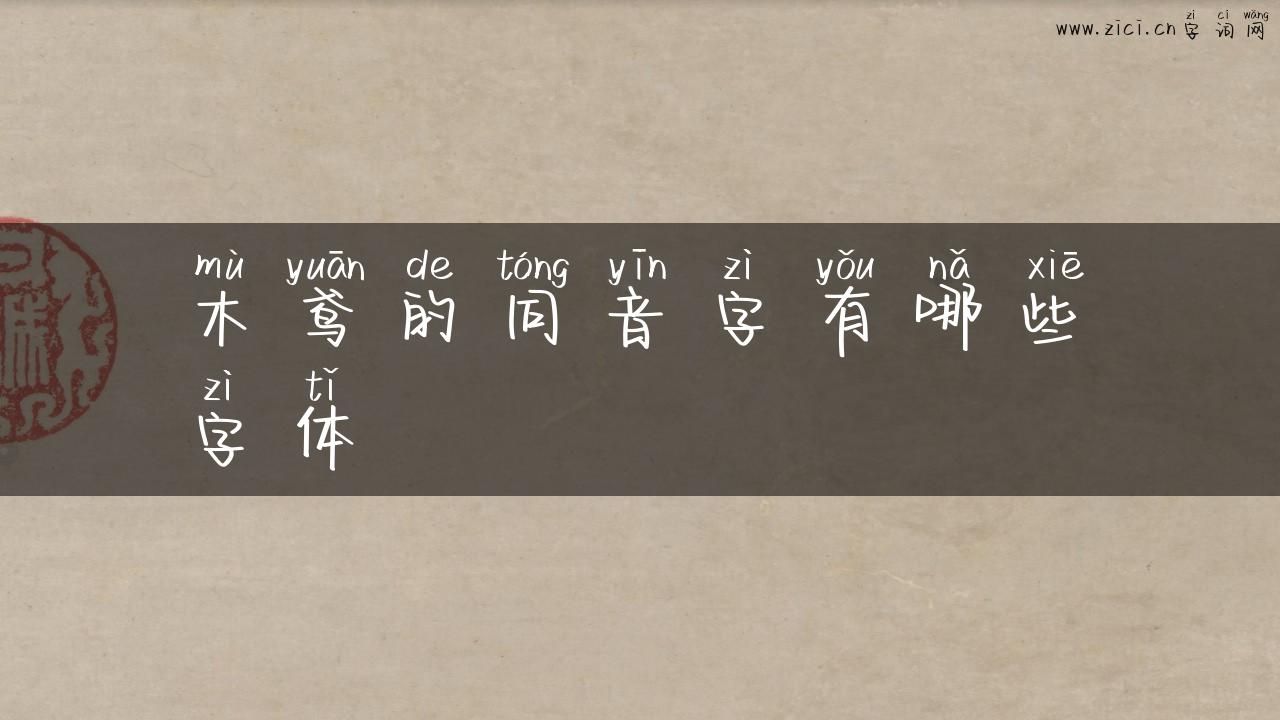 zì cí wǎng
www.zici.cn 字词网
mù yuān de tóng yīn zì yǒu nǎ xiē
木鸢的同音字有哪些
zì tǐ
字体